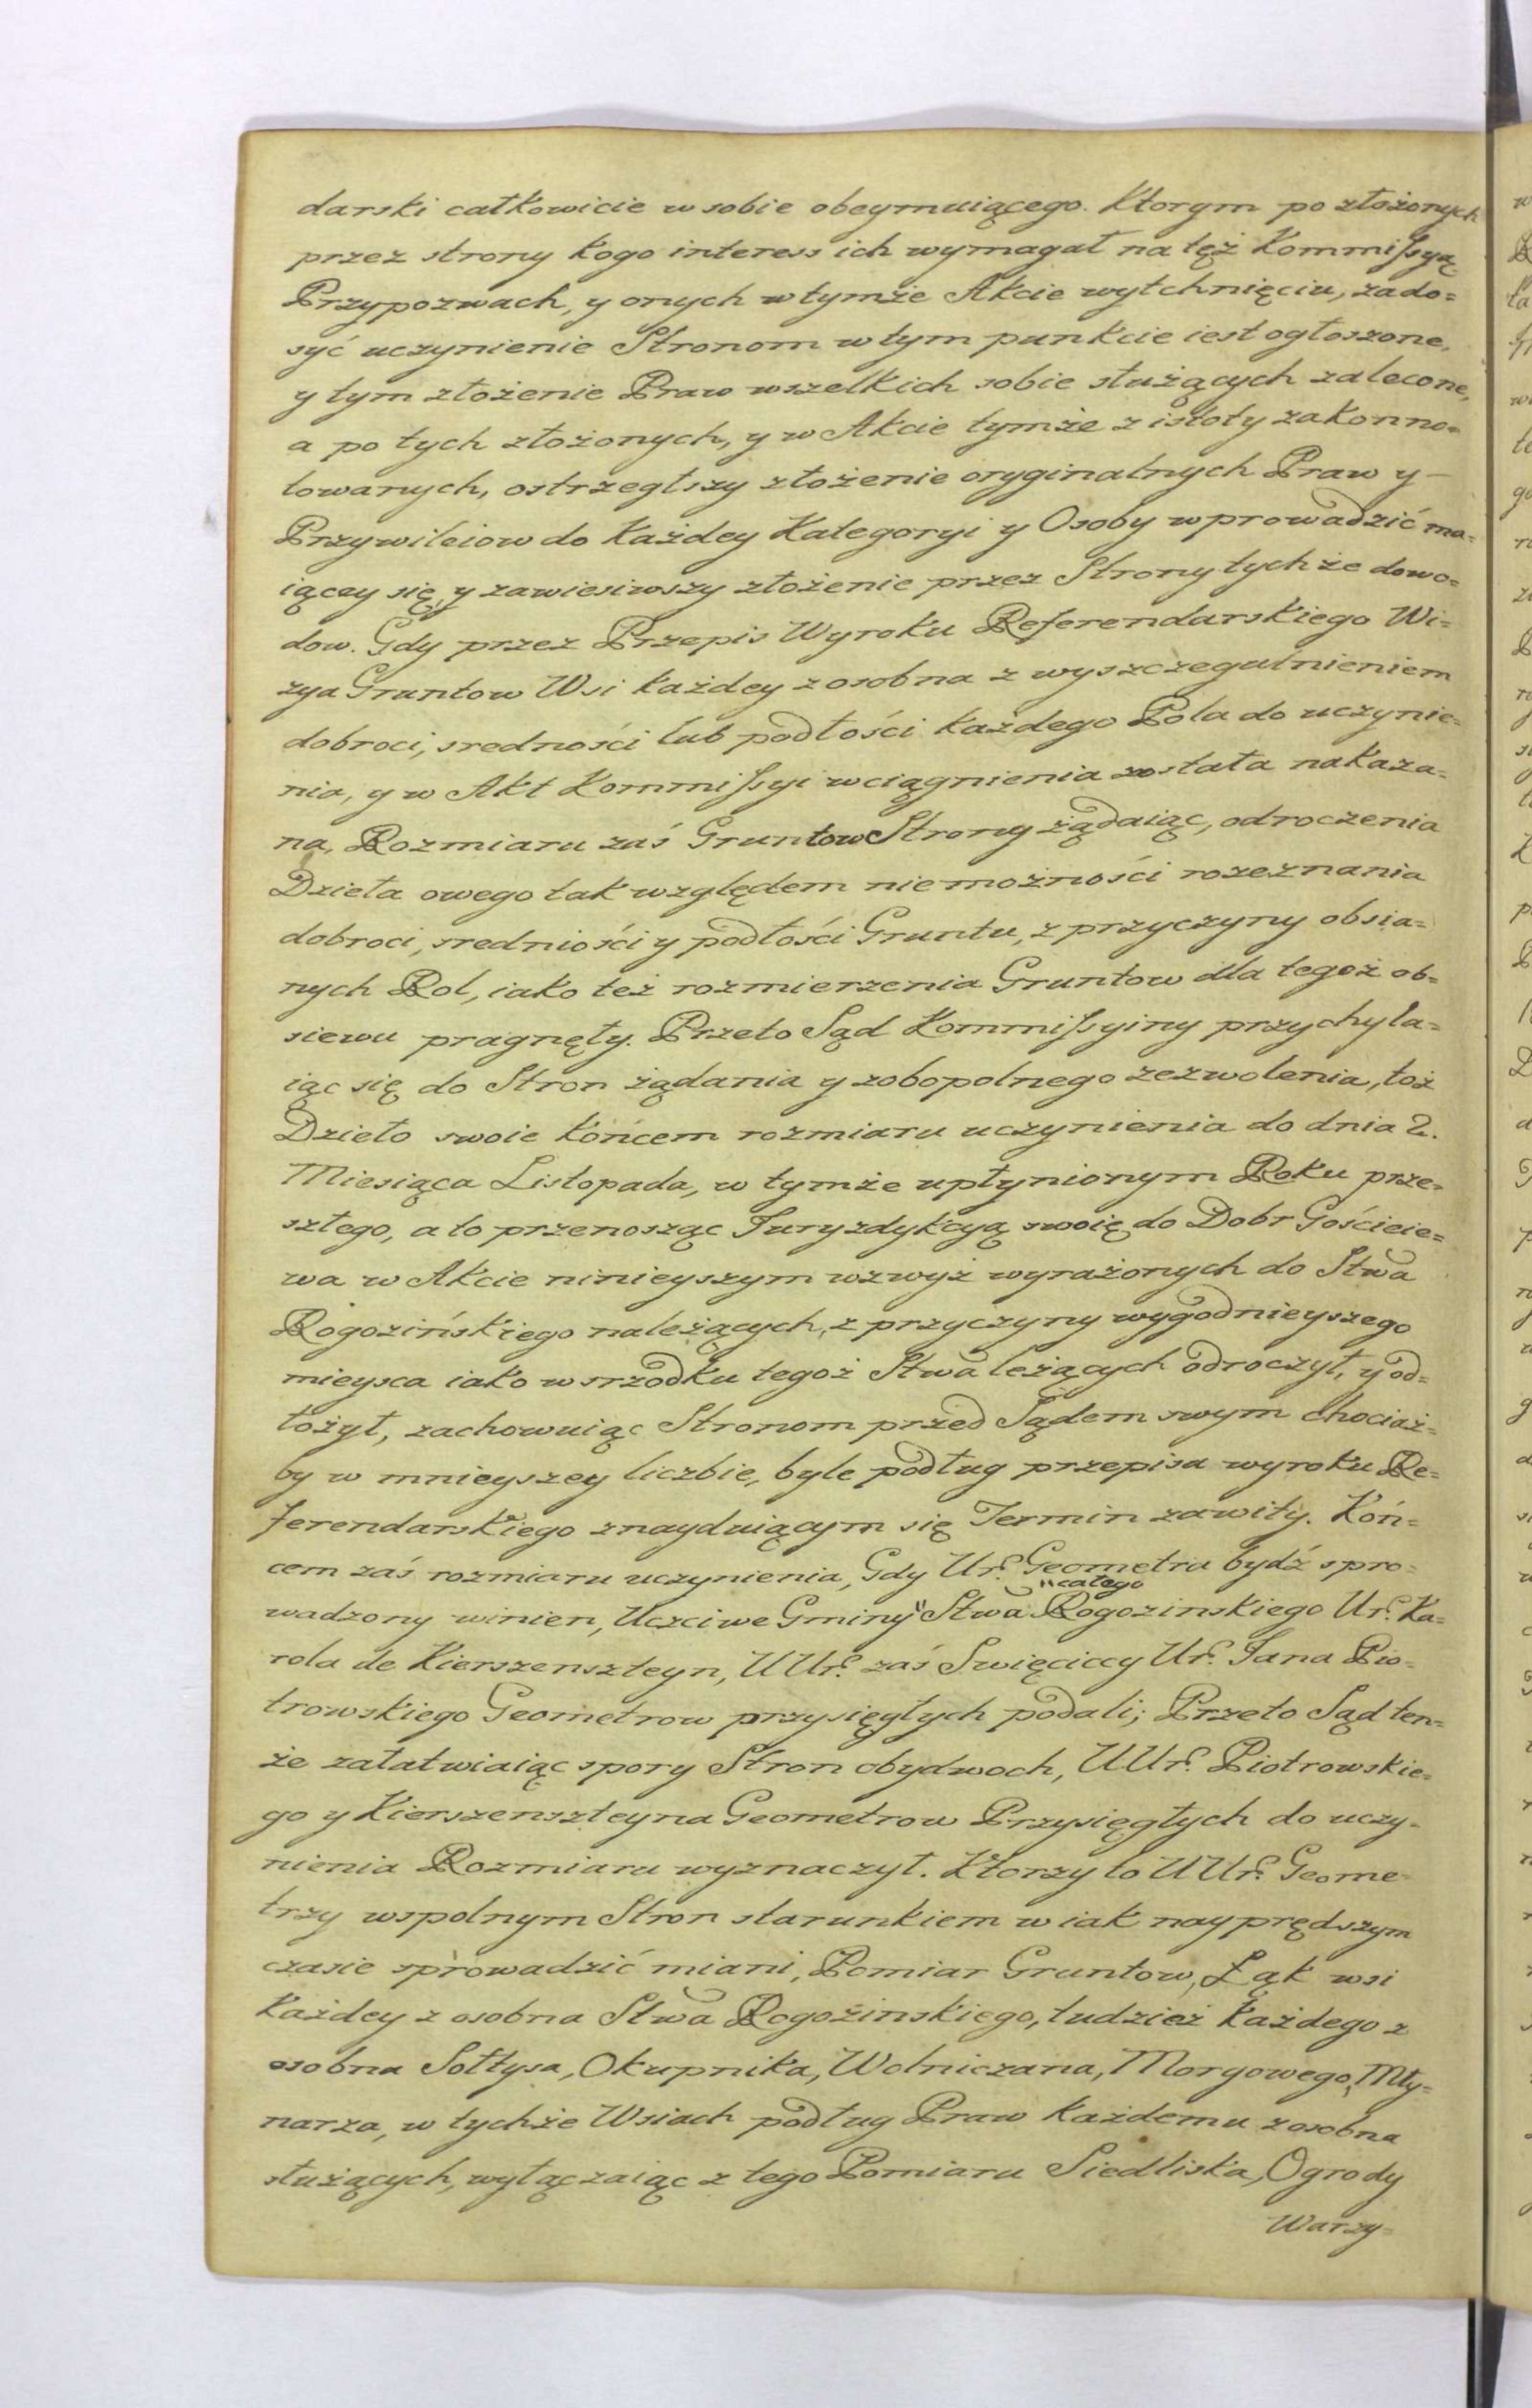 darski całkowicie w sobie obeymuiącego. Ktorym po złożonych
przez strony kogo interess ich wymagał na tęż Kommissyą
Przypozwach, y onych w tymże Akcie wytchnięciu, zado=
syć uczynienie Stronom w tym punkcie iest ogłoszone,
y tym złożenie Praw wszelkich sobie służących zalecone,
a po tych złożonych, y w Akcie tymże z istoty zakonno=
towanych, ostrzegłszy złożenie oryginalnych Praw y –
Przywileiow do każdey Kategoryi y Osoby wprowadzić ma=
iącey się, y zawiesiwszy złożenie przez Strony tychże dowo=
dow. Gdy przez Przepis Wyroku Referendarskiego Wi=
zya Gruntow Wsi każdey z osobna z wyszczegulnieniem
dobroci, sredności lub podłości każdego Pola do uczynie=
nia, y w Akt Kommissyi wciągnienia została nakaza=
na, Rozmiaru zaś Gruntow Strony żądaiąc, odroczenia
Dzieła owego tak względem niemożności rozeznania
dobroci, sredniości y podłości Gruntu, z przyczyny obsia=
nych Rol, iako też rozmierzenia Gruntow dla tegoż ob=
siewu pragnęły. Przeto Sąd Kommissyiny przychyla=
iąc się do Stron żądania y zobopolnego zezwolenia, toż
Dzieło swoie końcem rozmiaru uczynienia do dnia 2.
Miesiąca Listopada, w tymże upłynionym Roku prze=
szłego, a to przenosząc Juryzdykcyą swoię do Dobr Gościeie=
wa w Akcie ninieyszym wzwyż wyrażonych do Stwa
Rogozińskiego należących, z przyczyny wygodnieyszego
mieysca iako w srzodku tegoż Stwa leżących odroczył, y od=
łożył, zachowuiąc Stronom przed Sądem swym chociaż=
by w mnieyszey liczbie, byle podług przepisa wyroku Re=
ferendarskiego znayduiącym się Termin zawity. Koń=
cem zaś rozmiaru uczynienia, Gdy Ur. Geometra bydź spro=
wadzony winien, Uczciwe Gminy "całego Stwa Rogozinskiego Ur. Ka=
rola de Kierszenszteyn, UUr. zaś Swięciccy Ur. Jana Pio=
trowskiego Geometrow przysięgłych podali; Przeto Sąd ten=
że załatwiaiąc spory Stron obydwoch, UUr. Piotrowskie=
go y Kierszenszteyna Geometrow Przysięgłych do uczy=
nienia Rozmiaru wyznaczył. Ktorzy to UUr. Geome=
trzy wspolnym Stron starunkiem w iak nayprędszym
czasie sprowadzić miani, Pomiar Gruntow, Łąk wsi
każdey z osobna Stwa Rogozinskiego, tudzież każdego z
osobna Sołtysa, Okupnika, Wolniczana, Morgowego, Mły=
narza, w tychże Wsiach podług Praw każdemu z osobna
służących, wyłączaiąc z tego Pomiaru Siedliska, Ogrody
Warzy=